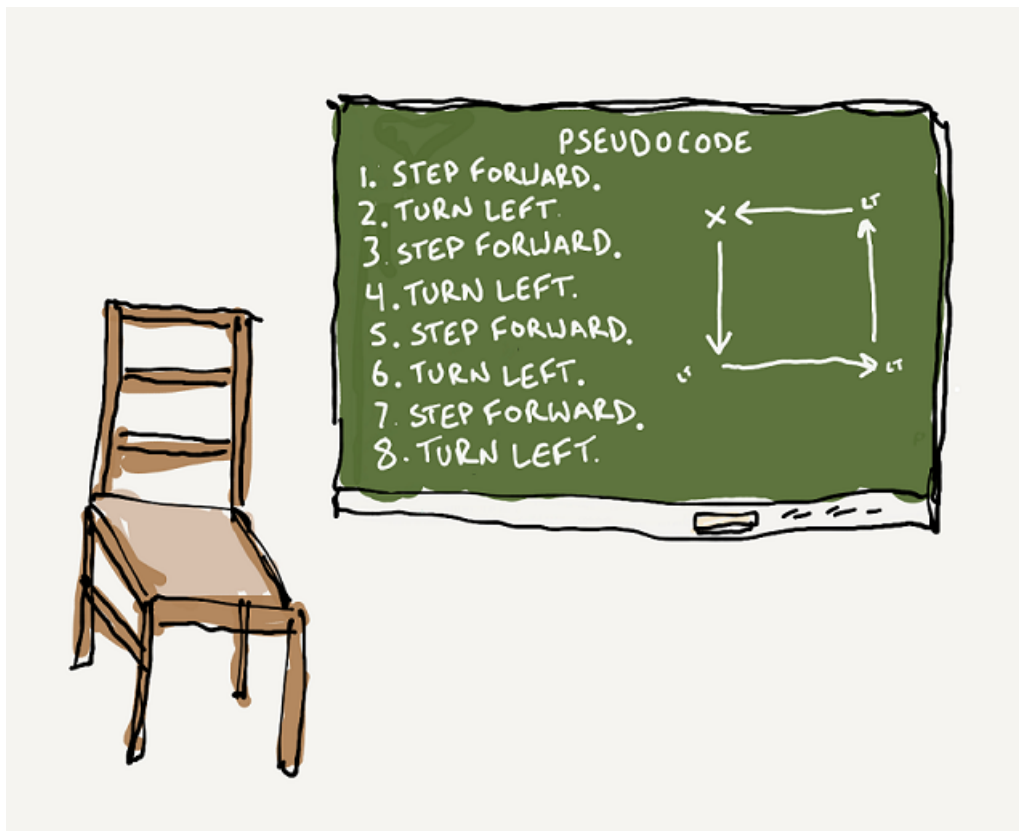 PSEUDOCODE
1. STEP FORWARD.
2. TURN LEFT.
3. STEP FORWARD.
4. TURN LEFT.
5. STEP FORWARD.
6. TURN LEFT.
7. STEP FORWARD.
8. TURN LEFT.
X LT
LT LT